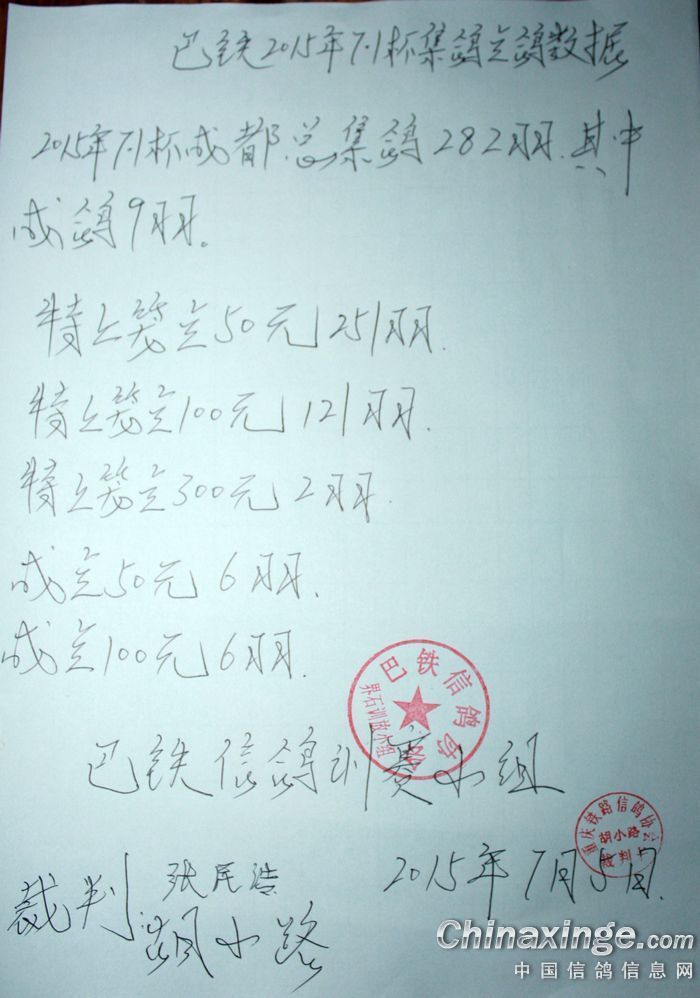 巴铁2015年7.1杯集鸽点鸽数据
2015年7.1杯成都总集鸽282羽.其中
成鸽9羽。
特上笼点50元251羽.
特上笼点100元121羽.
特上笼点300元2羽.
成点50元6羽.
成点100元6羽.
巴铁信鸽
界石训放小组
巴铁信鸽训赛小组
重庆铁路信鸽协会
胡小路
裁判
2015年7月5日.
裁判:张民浩
胡小路
Chinaxinge.com
中国信鸽信息网